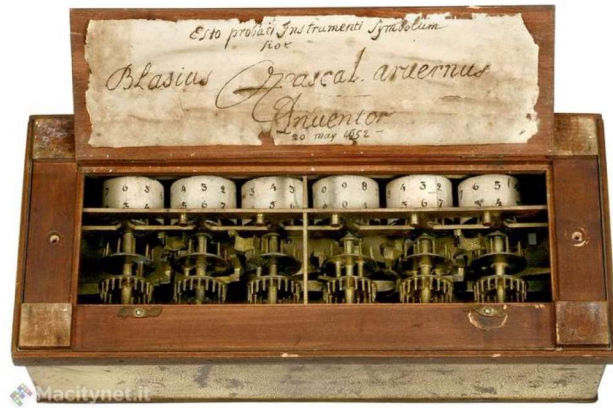 Esto probati Instrumenti Symbolum
hoc
Blasius Pascal. arvernus
Inventor
20 may 1652
7 6 3 4 3 2 5 4 3 0 0 8 4 3 2 6 5 1
Macitynet.it